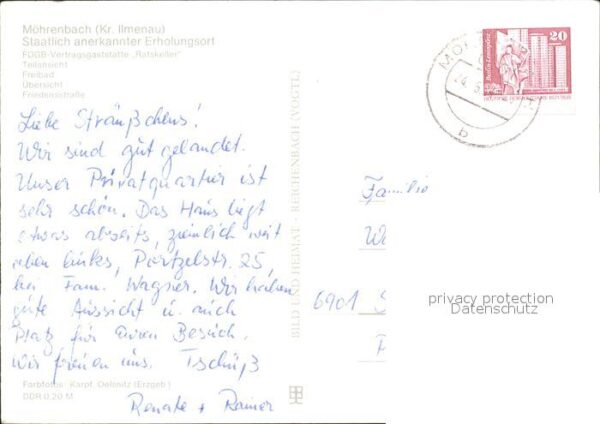 Möhrenbach (Kr. Ilmenau)
Staatlich anerkannter Erholungsort
FDGB-Vertragsgaststätte „Ratskeller"
Teilansicht
Freibad
Übersicht
Friedensstraße
Liebe Sträußchens!
Wir sind gut gelandet.
Unser Privatquartier ist
sehr schön. Das Haus liegt
etwas abseits, ziemlich weit
oben links, Pörtzelstr. 25,
bei Fam. Wagner. Wir haben
gute Aussicht u. auch
Platz für euren Besuch.
Wir freuen uns. Tschüß
Renate + Rainer
Farbfotos: Karpf, Oelsnitz (Erzgeb.)
DDR 0,20 M
BILD UND HEIMAT · REICHENBACH (VOGTL)
20
DEUTSCHE DEMOKRATISCHE REPUBLIK
b
Familie
6901
privacy protection
Datenschutz